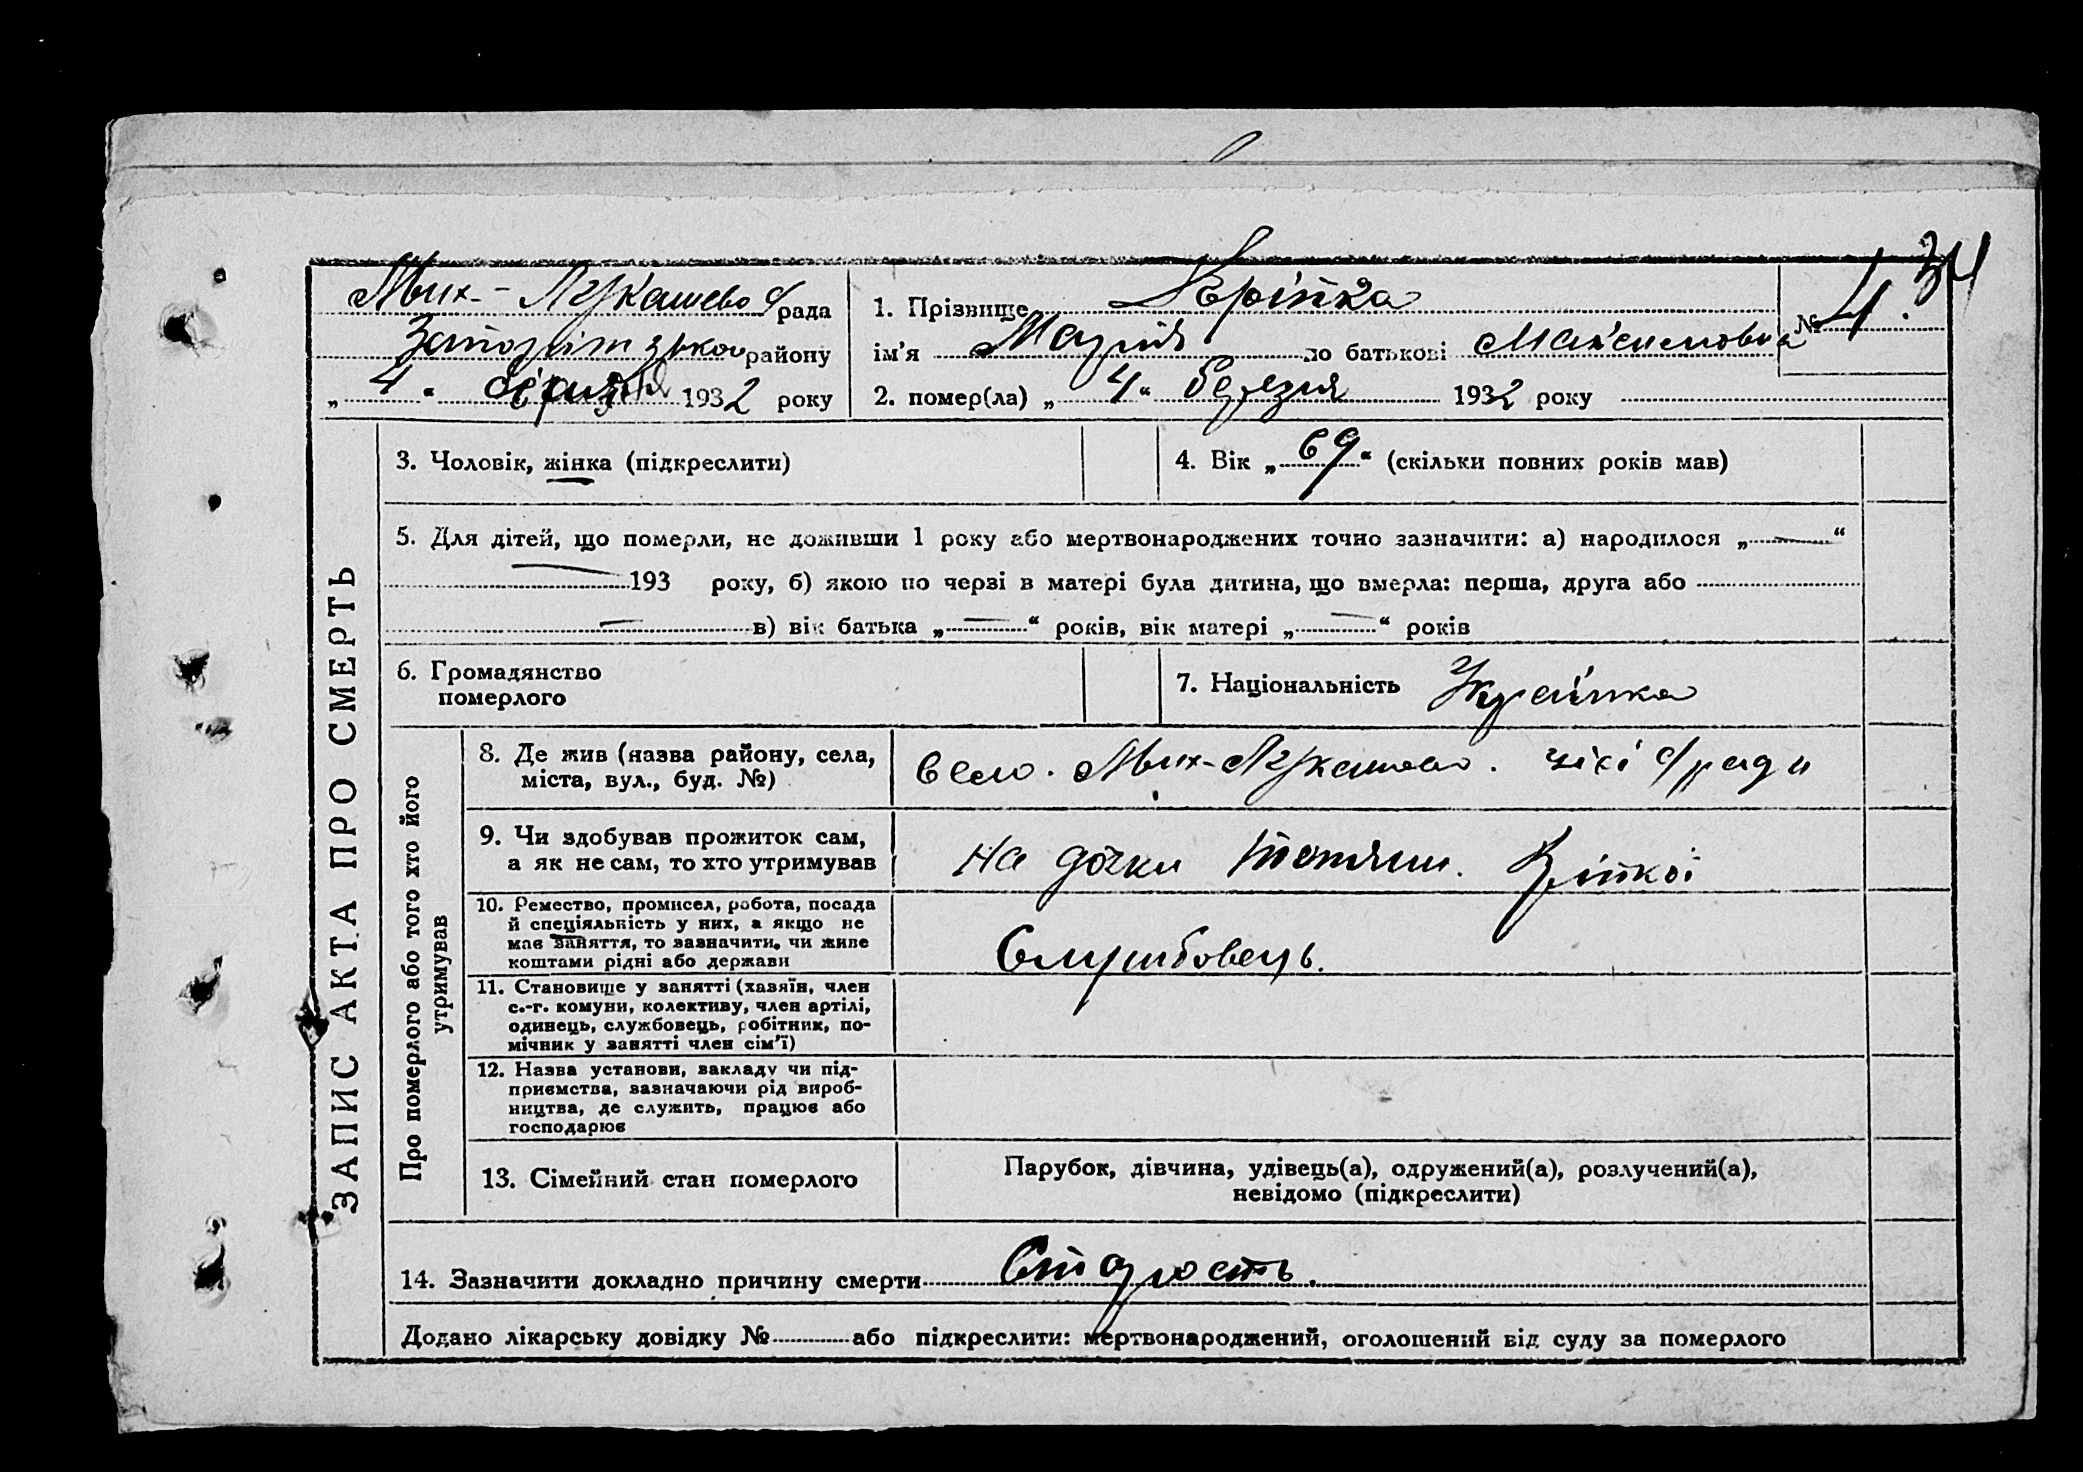 Мих.- Лукашево с/рада
Запорізького району
„ 4 “ 1932 року
1. Прізвище Кріпка
ім'я Марія по батькові Максимовна
2. помер(ла) „ 4 “ березня 1932 року
№ 4. 34
ЗАПИС АКТА ПРО СМЕРТЬ
3. Чоловік, жінка (підкреслити)
4. Вік „ 69 “ (скільки повних років мав)
5. Для дітей, що померли, не доживши 1 року або мертвонароджених точно зазначити: а) народилося „ — “
— 193 року, б) якою по черзі в матері була дитина, що вмерла: перша, друга або
— в) вік батька „ — “ років, вік матері „ — “ років
6. Громадянство
померлого
7. Національність Українка
Про померлого або того хто його
утримував
8. Де жив (назва району, села,
міста, вул., буд. №)
село. Мих-Лукашево. цієї с/ради
9. Чи здобував прожиток сам,
а як не сам, то хто утримував
на дочки Тетяни. Кріпкої
10. Ремество, промисел, робота, посада
й спеціяльність у них, а якщо не
мав заняття, то зазначити, чи живе
коштами рідні або держави
Службовець.
11. Становище у занятті (хазяїн, член
с.-г. комуни, колективу, член артілі,
одинець, службовець, робітник, по-
мічник у занятті член сім'ї)
12. Назва установи, закладу чи під-
приємства, зазначаючи рід вироб-
ництва, де служить, працює або
господарює
13. Сімейний стан померлого
Парубок, дівчина, удівець(а), одружений(а), розлучений(а),
невідомо (підкреслити)
14. Зазначити докладно причину смерти Старость.
Додано лікарську довідку № або підкреслити: мертвонароджений, оголошений від суду за померлого